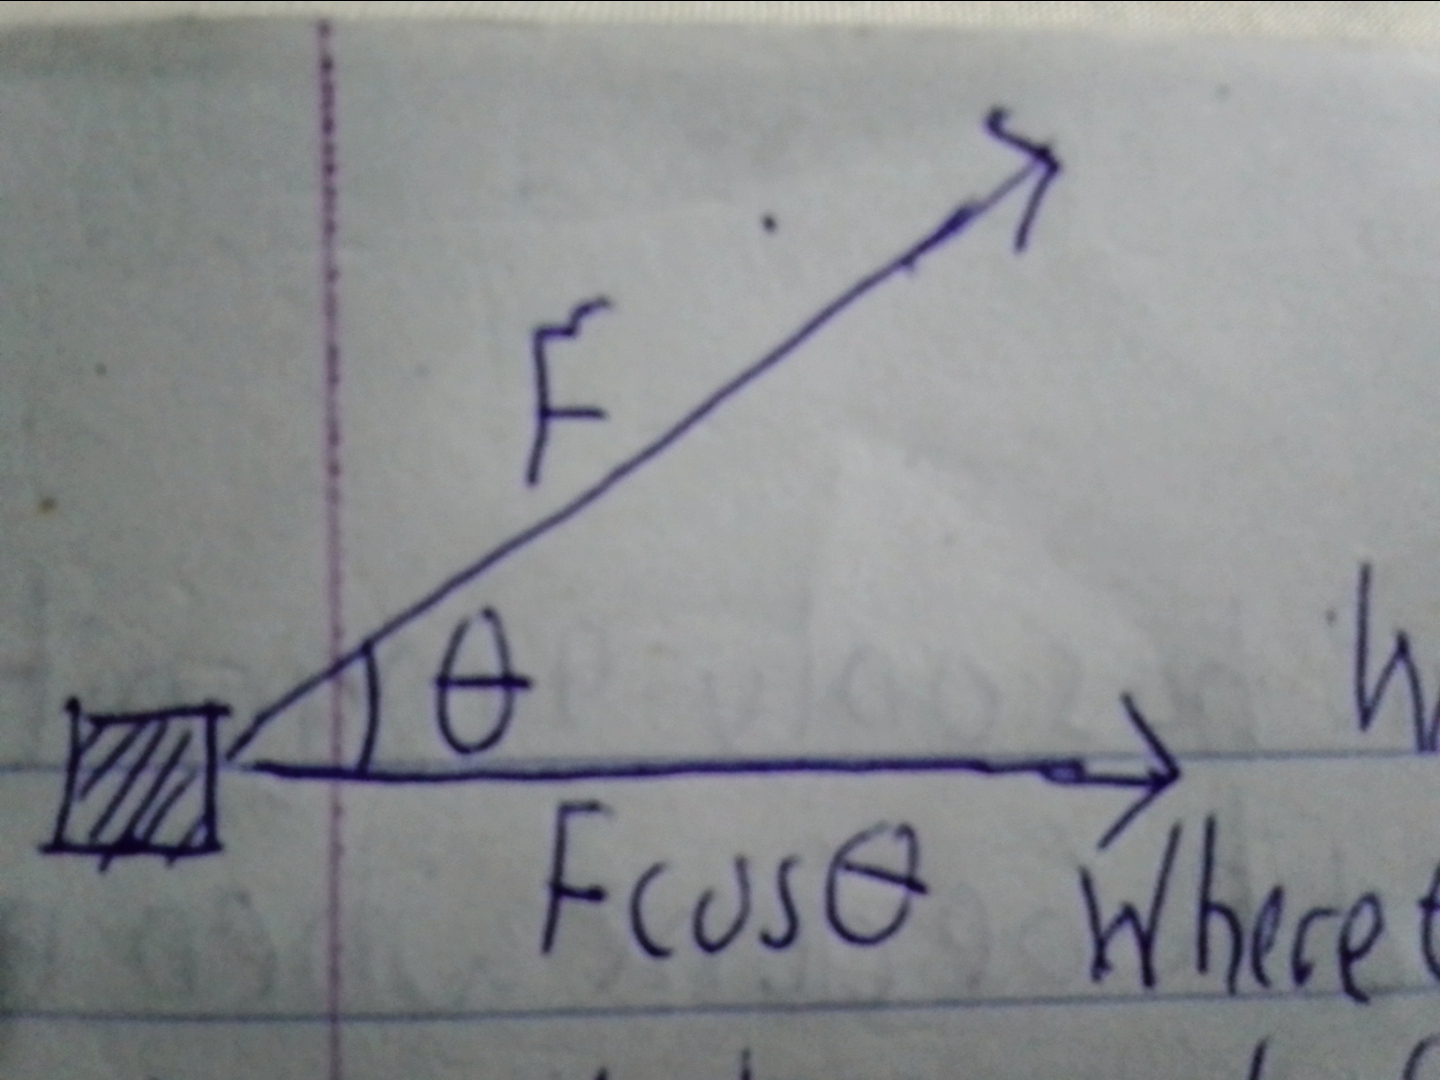 F
θ
W
Fcosθ Where